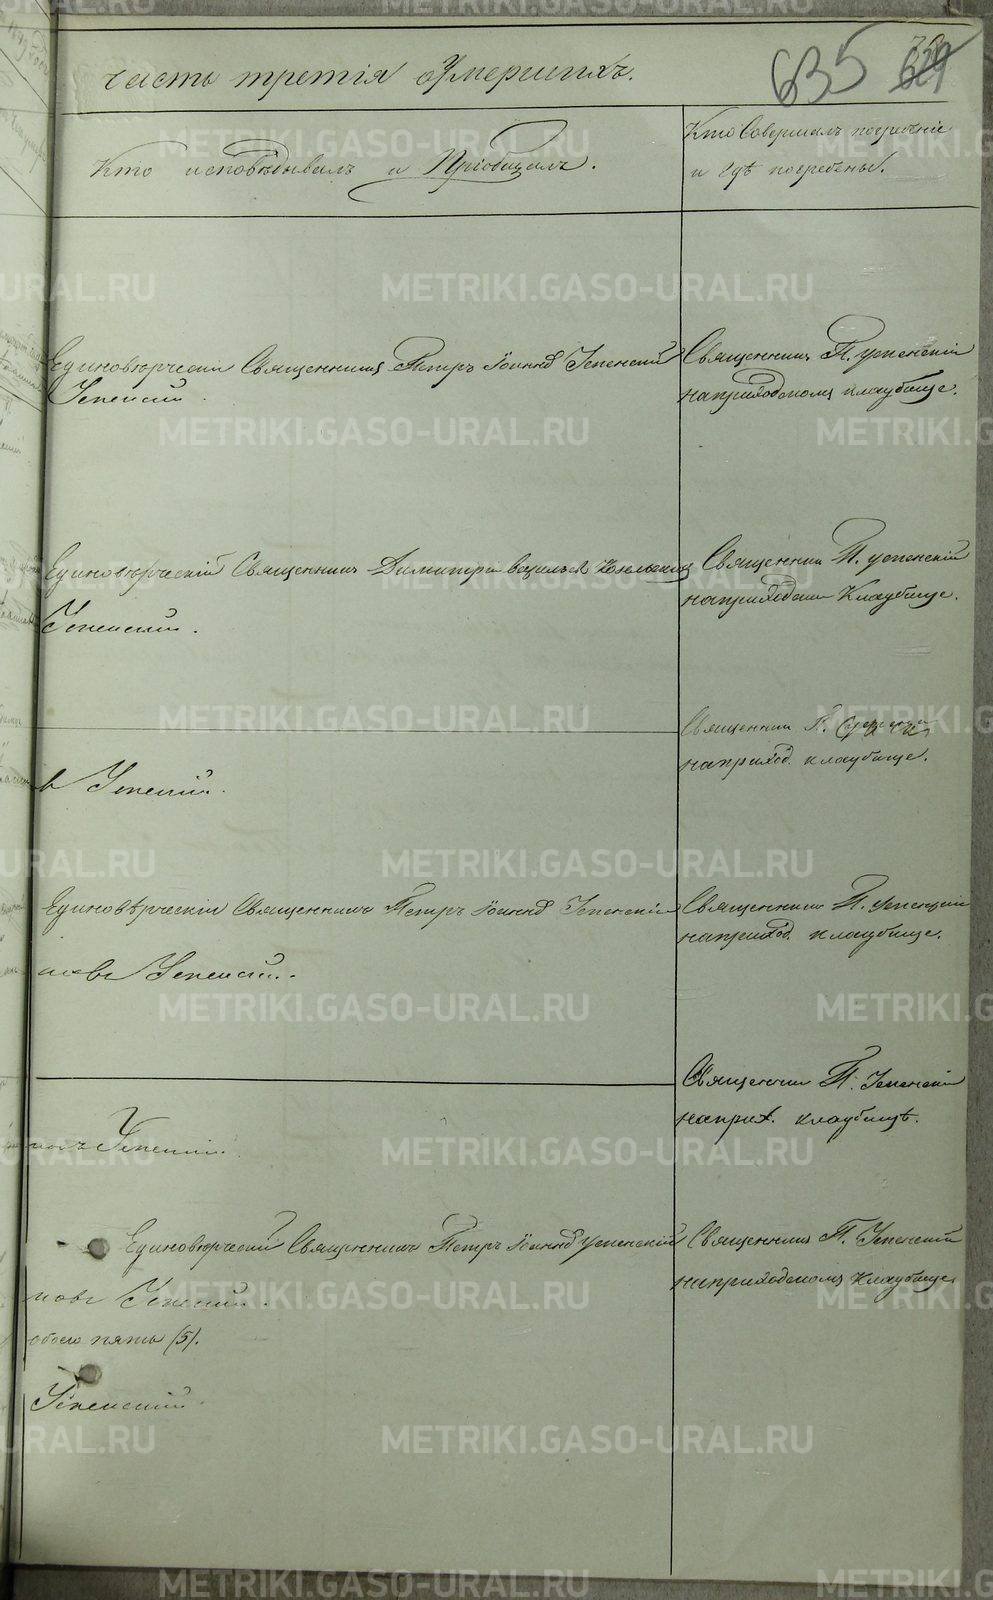 часть третія о умершихъ.
635
629
Кто исповѣдывалъ и Пріобщалъ.
Кто Совершалъ погребеніе
и гдѣ погребены.
Единоверческій Священникъ Петръ Іоанновъ Успенскій
Успенскій.
Священникъ П. успенскій
наприходскомъ кладбище.
Единоверческій Священникъ Димитрій васильев
Успенскій.
Священник П. успенскій
наприходском Кладбище.
Священник П.
наприход. кладбище.
в Успенскій.
Единовѣрческій Священникъ Петръ Іоаннов Успенскій
Успенскій.
Священник П. успенскій
наприход. кладбище.
Священник П. Успенскій
наприх. кладбищѣ.
Успенскій.
Единоверческій Священникъ Петръ Іоаннов успенскій
Успенскій.
Священникъ П. Успенскій
наприходскомъ Кладбище
обоего пять (5).
Успенскій.
METRIKI.GASO-URAL.RU